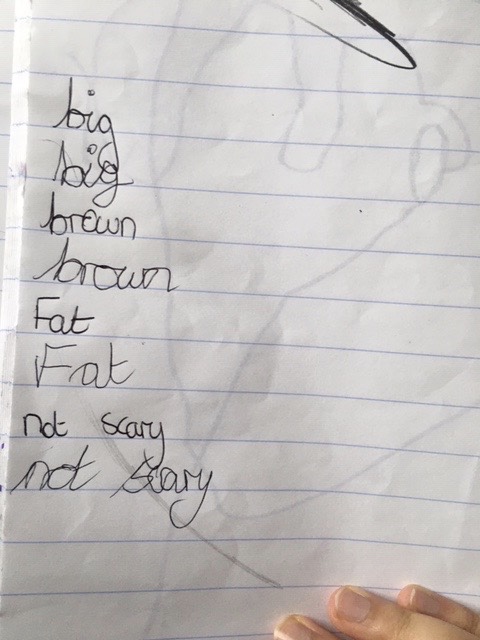 big
big
brewn
brown
Fat
Fat
not scary
not scary